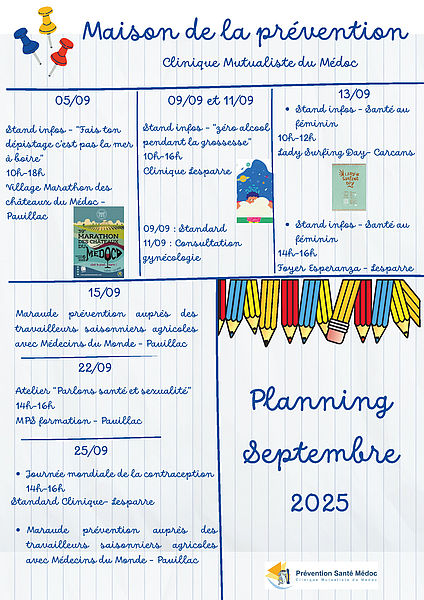 Maison de la prévention
Clinique Mutualiste du Médoc
05/09
Stand infos - "Fais ton
dépistage c'est pas la mer
à boire"
10h-18h
Village Marathon des
châteaux du Médoc -
Pauillac
MARATHON
DES CHÂTEAUX
DU
MEDOC
09/09 et 11/09
Stand infos - "zéro alcool
pendant la grossesse"
10h-16h
Clinique Lesparre
09/09 : Standard
11/09 : Consultation
gynécologie
13/09
• Stand infos - Santé au
féminin
10h-12h
Lady Surfing Day- Carcans
LADY
SURFING
DAY
• Stand infos - Santé au
féminin
14h-16h
Foyer Esperanza - Lesparre
15/09
Maraude prévention auprès des
travailleurs saisonniers agricoles
avec Médecins du Monde - Pauillac
22/09
Atelier "Parlons santé et sexualité"
14h-16h
MPS formation - Pauillac
25/09
• Journée mondiale de la contraception
14h-16h
Standard Clinique- Lesparre
• Maraude prévention auprès des
travailleurs saisonniers agricoles
avec Médecins du Monde - Pauillac
Planning
Septembre
2025
Prévention Santé Médoc
Clinique Mutualiste du Médoc